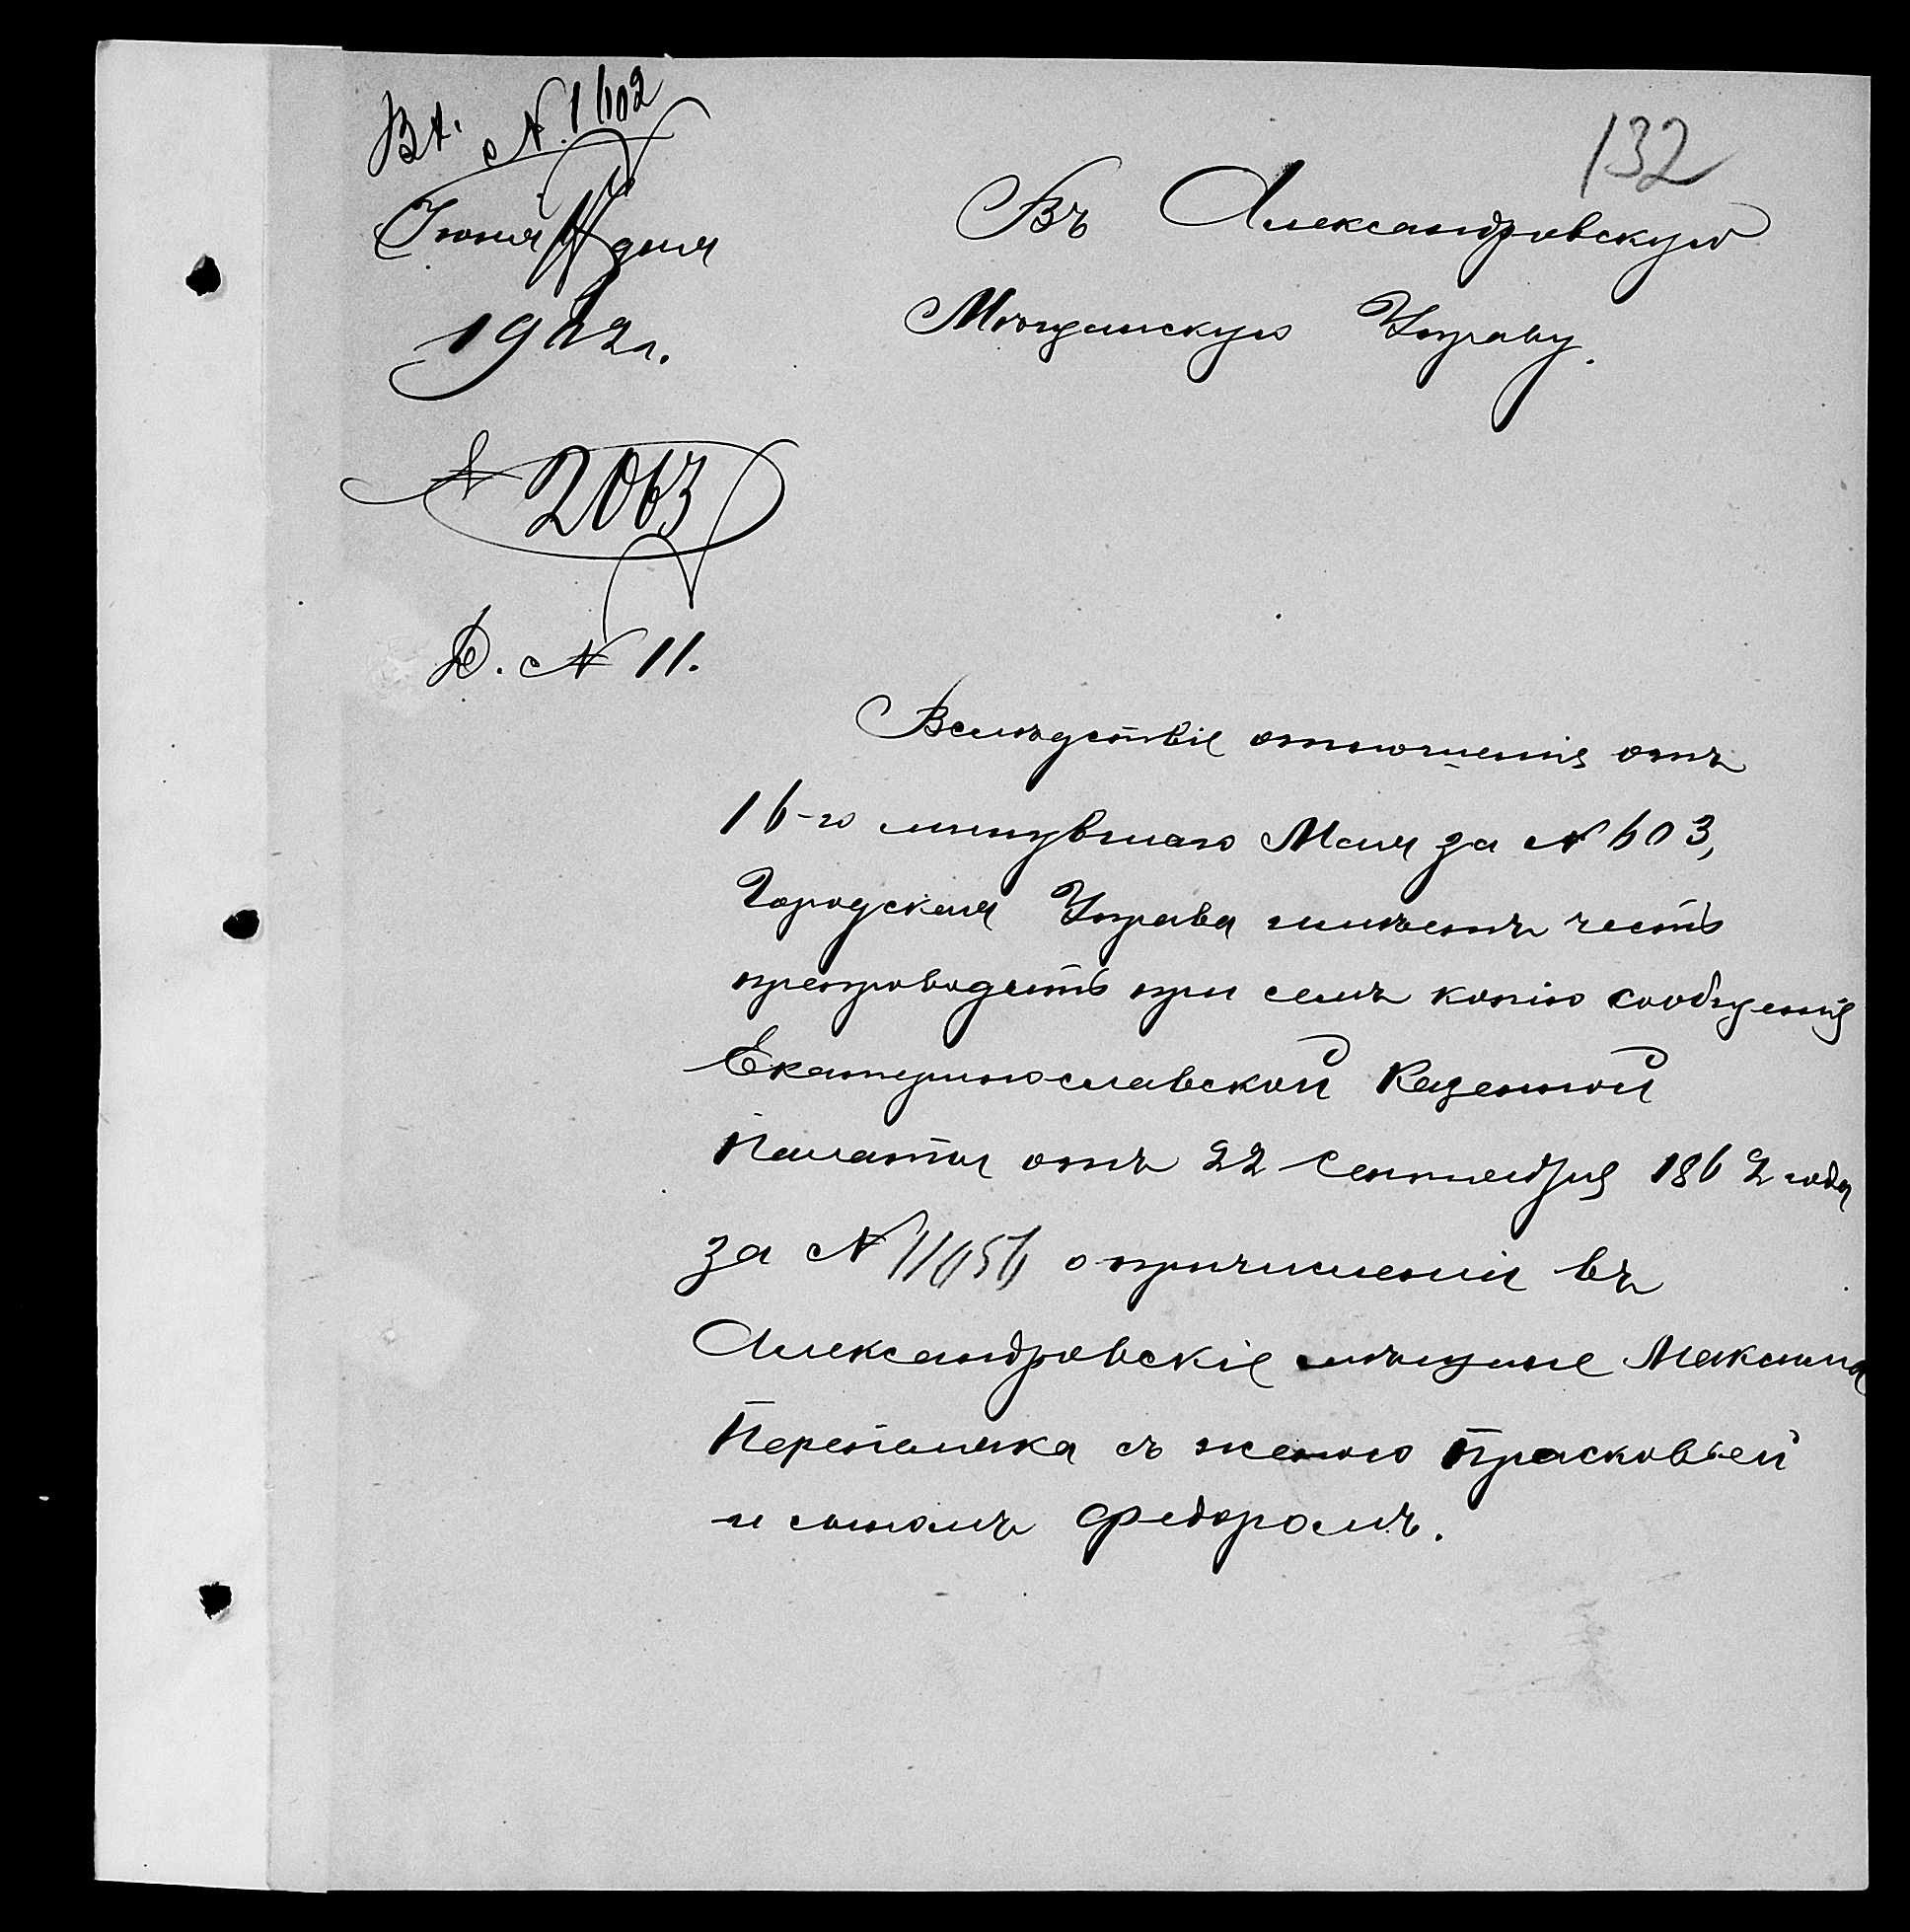 Вх. № 1602
132
Іюня дня
1912 г.
№ 2063
Д. № 11.
Въ Александровскую
Мѣщанскую Управу.
Вслѣдствіе отношенія отъ
16-го минувшаго Мая за № 603,
Городская Управа имѣетъ честь
препроводить при семъ копію сообщенія
Екатеринославской Казенной
Палаты отъ 22 Сентября 1862 года
за № 11656 о причисленіи въ
Александровскіе мѣщане Максима
Перепелика съ женою Прасковьей
и сыномъ Федоромъ.